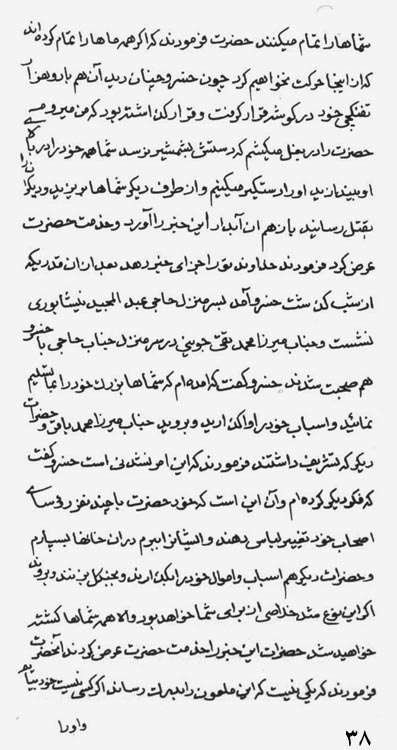 شماها را تمام میکنند حضرت فرمودند که اگر همه ماها را تمام کرده اند
که از اینجا حرکت نخواهیم کرد چون خسرو چنان دید آن هم با دو هزار
تفنکچی خود در کوشه قرار کرفت و قرار کذاشته بود که من میروم
حضرت را در بغل میکشم که دستش بشمشیر نرسد شما همه خود را در بالای
او بیندازید او را دستکیر میکنیم و از طرف دیکر شماها بریزید و دیکران را
بقتل رسانید باز هم آن آبدار این خبر را آورد و خدمت حضرت
عرض کرد فرمودند خداوند تو را جزای خیر دهد بعد از آن قدریکه
از شب کذشت خسرو آمد بسر منزل حاجی عبد المجید نیشابوری
نشست و جناب میرزا محمد تقی جوینی در سر منزل جناب حاجی با خسرو
هم صحبت شدند خسرو کفت که آمده ام که شماها بزرك خود را بما تسلیم
نمائید و اسباب خود را واکذارید و بروید جناب میرزا محمد باقر و حضرات
دیکر که تشریف داشتند فرمودند که این امر نشدنی است خسرو کفت
که فکر دیکر کرده ام و آن این است که خود حضرت با چند نفر رؤسای
اصحاب خود تغییر لباس دهند و ایشانرا ببرم در آن خانها بسپارم
و حضرات دیکر هم اسباب و اموال خود را بکذارند و بجنکل بزنند و بروند
اکر این نوع شد خلاصی از برای شما خواهد بود و الا همه شماها کشته
خواهید شد حضرات این خبر را خدمت حضرت عرض کردند آنحضرت
فرمودند که یکی نیست که این ملعون را بدرك رساند اکر کسی نیست خود بیایم
و او را
۳۸